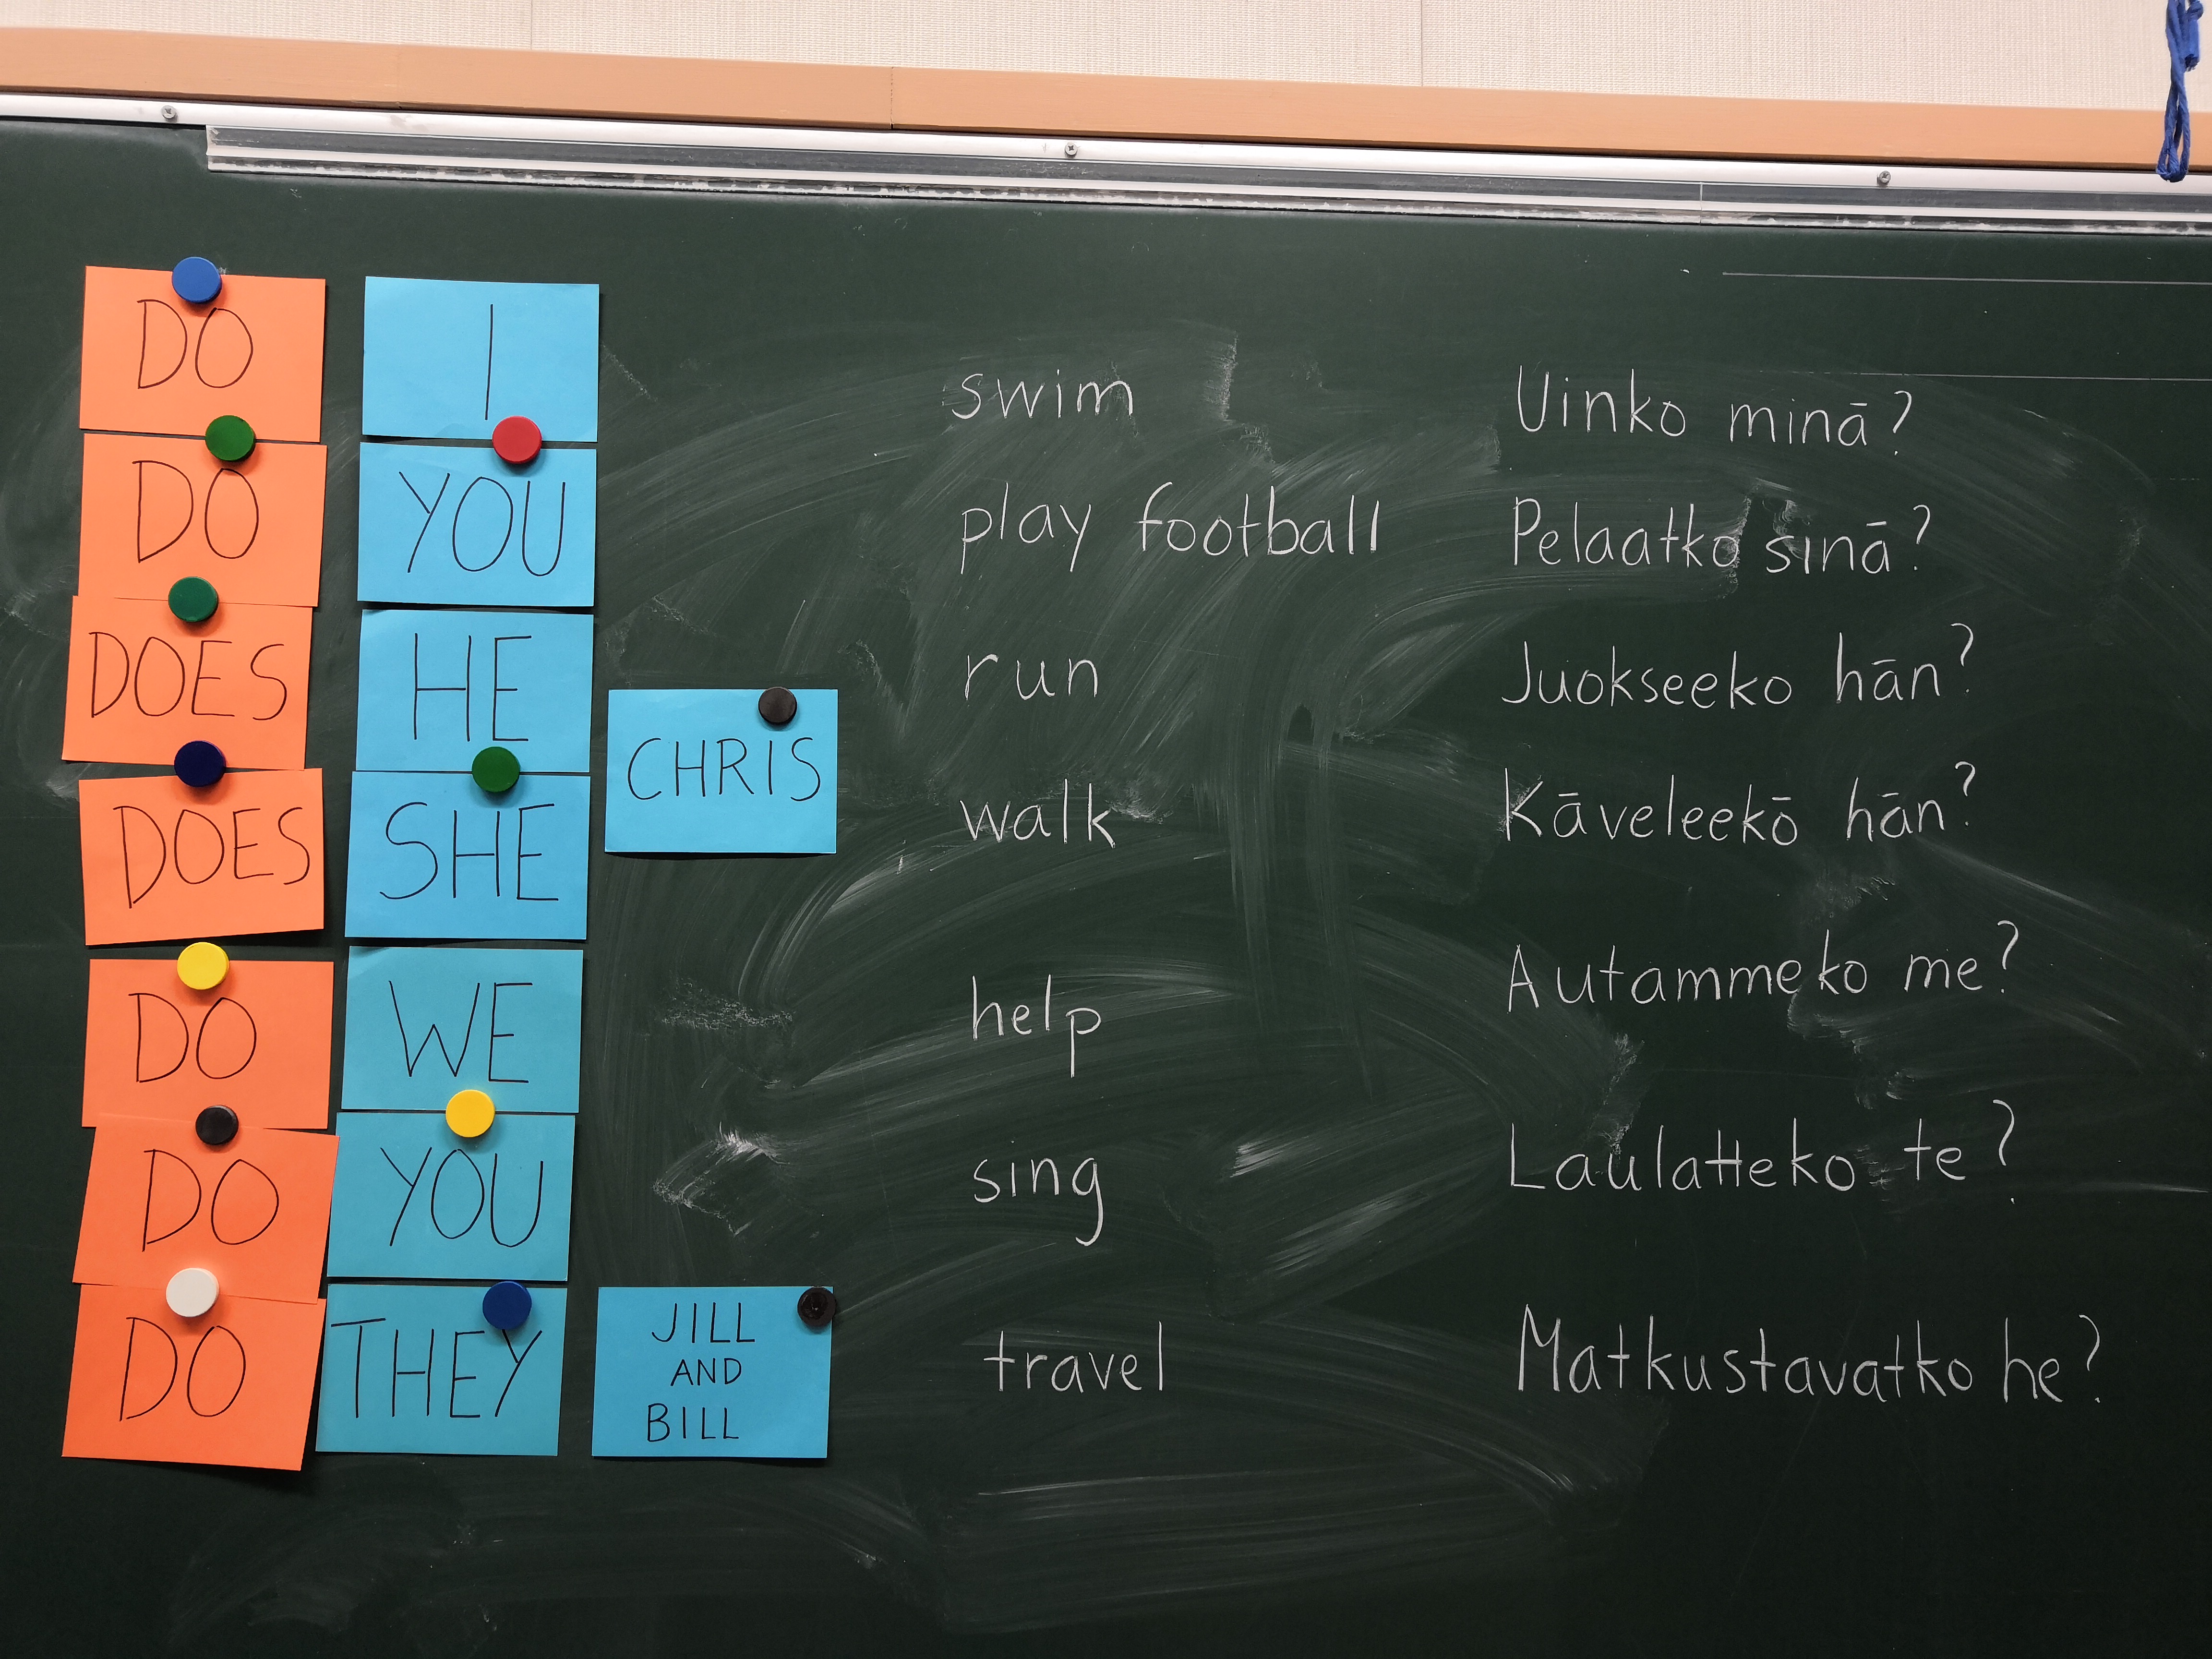 DO I swim Uinko minä?
DO YOU play football Pelaatko sinä?
DOES HE run Juokseeko hän?
CHRIS
DOES SHE walk Käveleekö hän?
DO WE help Autammeko me?
DO YOU sing Laulatteko te?
DO THEY JILL AND BILL travel Matkustavatko he?